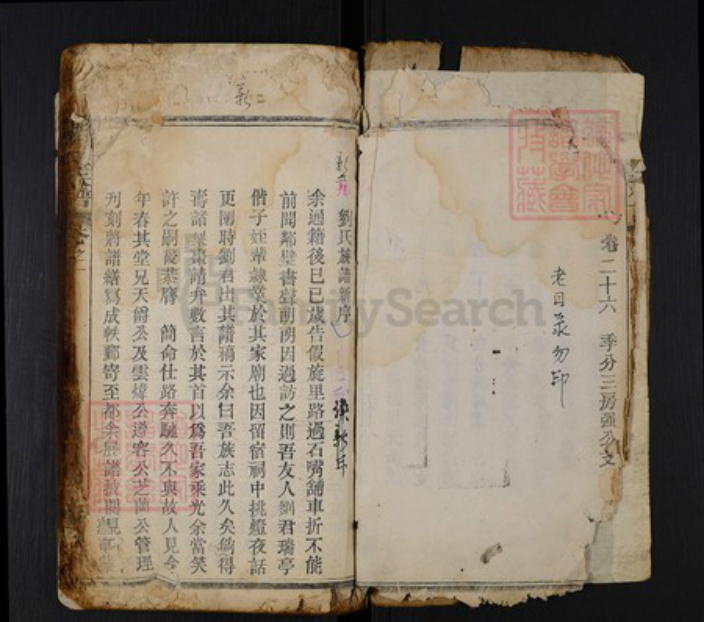 卷二十六 季分三房强公支
老目录勿印
新二
劉氏族譜新序
余通籍後已巳歲告假旋里路過石嘴舖車折不能
前聞鄰壁書聲朗朗因過訪之則吾友人劉君瑞亭
偕子姪輩肄業於其家廟也因留宿祠中挑燈夜話
更闌時劉君出其譜稿示余曰吾族志此久矣倘得
壽諸梨棗請弁數言於其首以爲吾家乘光余當笑
許之嗣後恭膺 簡命仕路奔馳久不與故人見今
年春其堂兄天爵公及雲 公遵客公芝蘭公管理
刋刻將譜繕寫成帙郵寄至都余展譜披閱見
FamilySearch